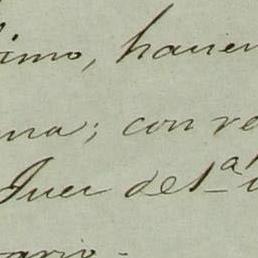 imo, hacien
na; con re
Juez de 1ª i
ario.